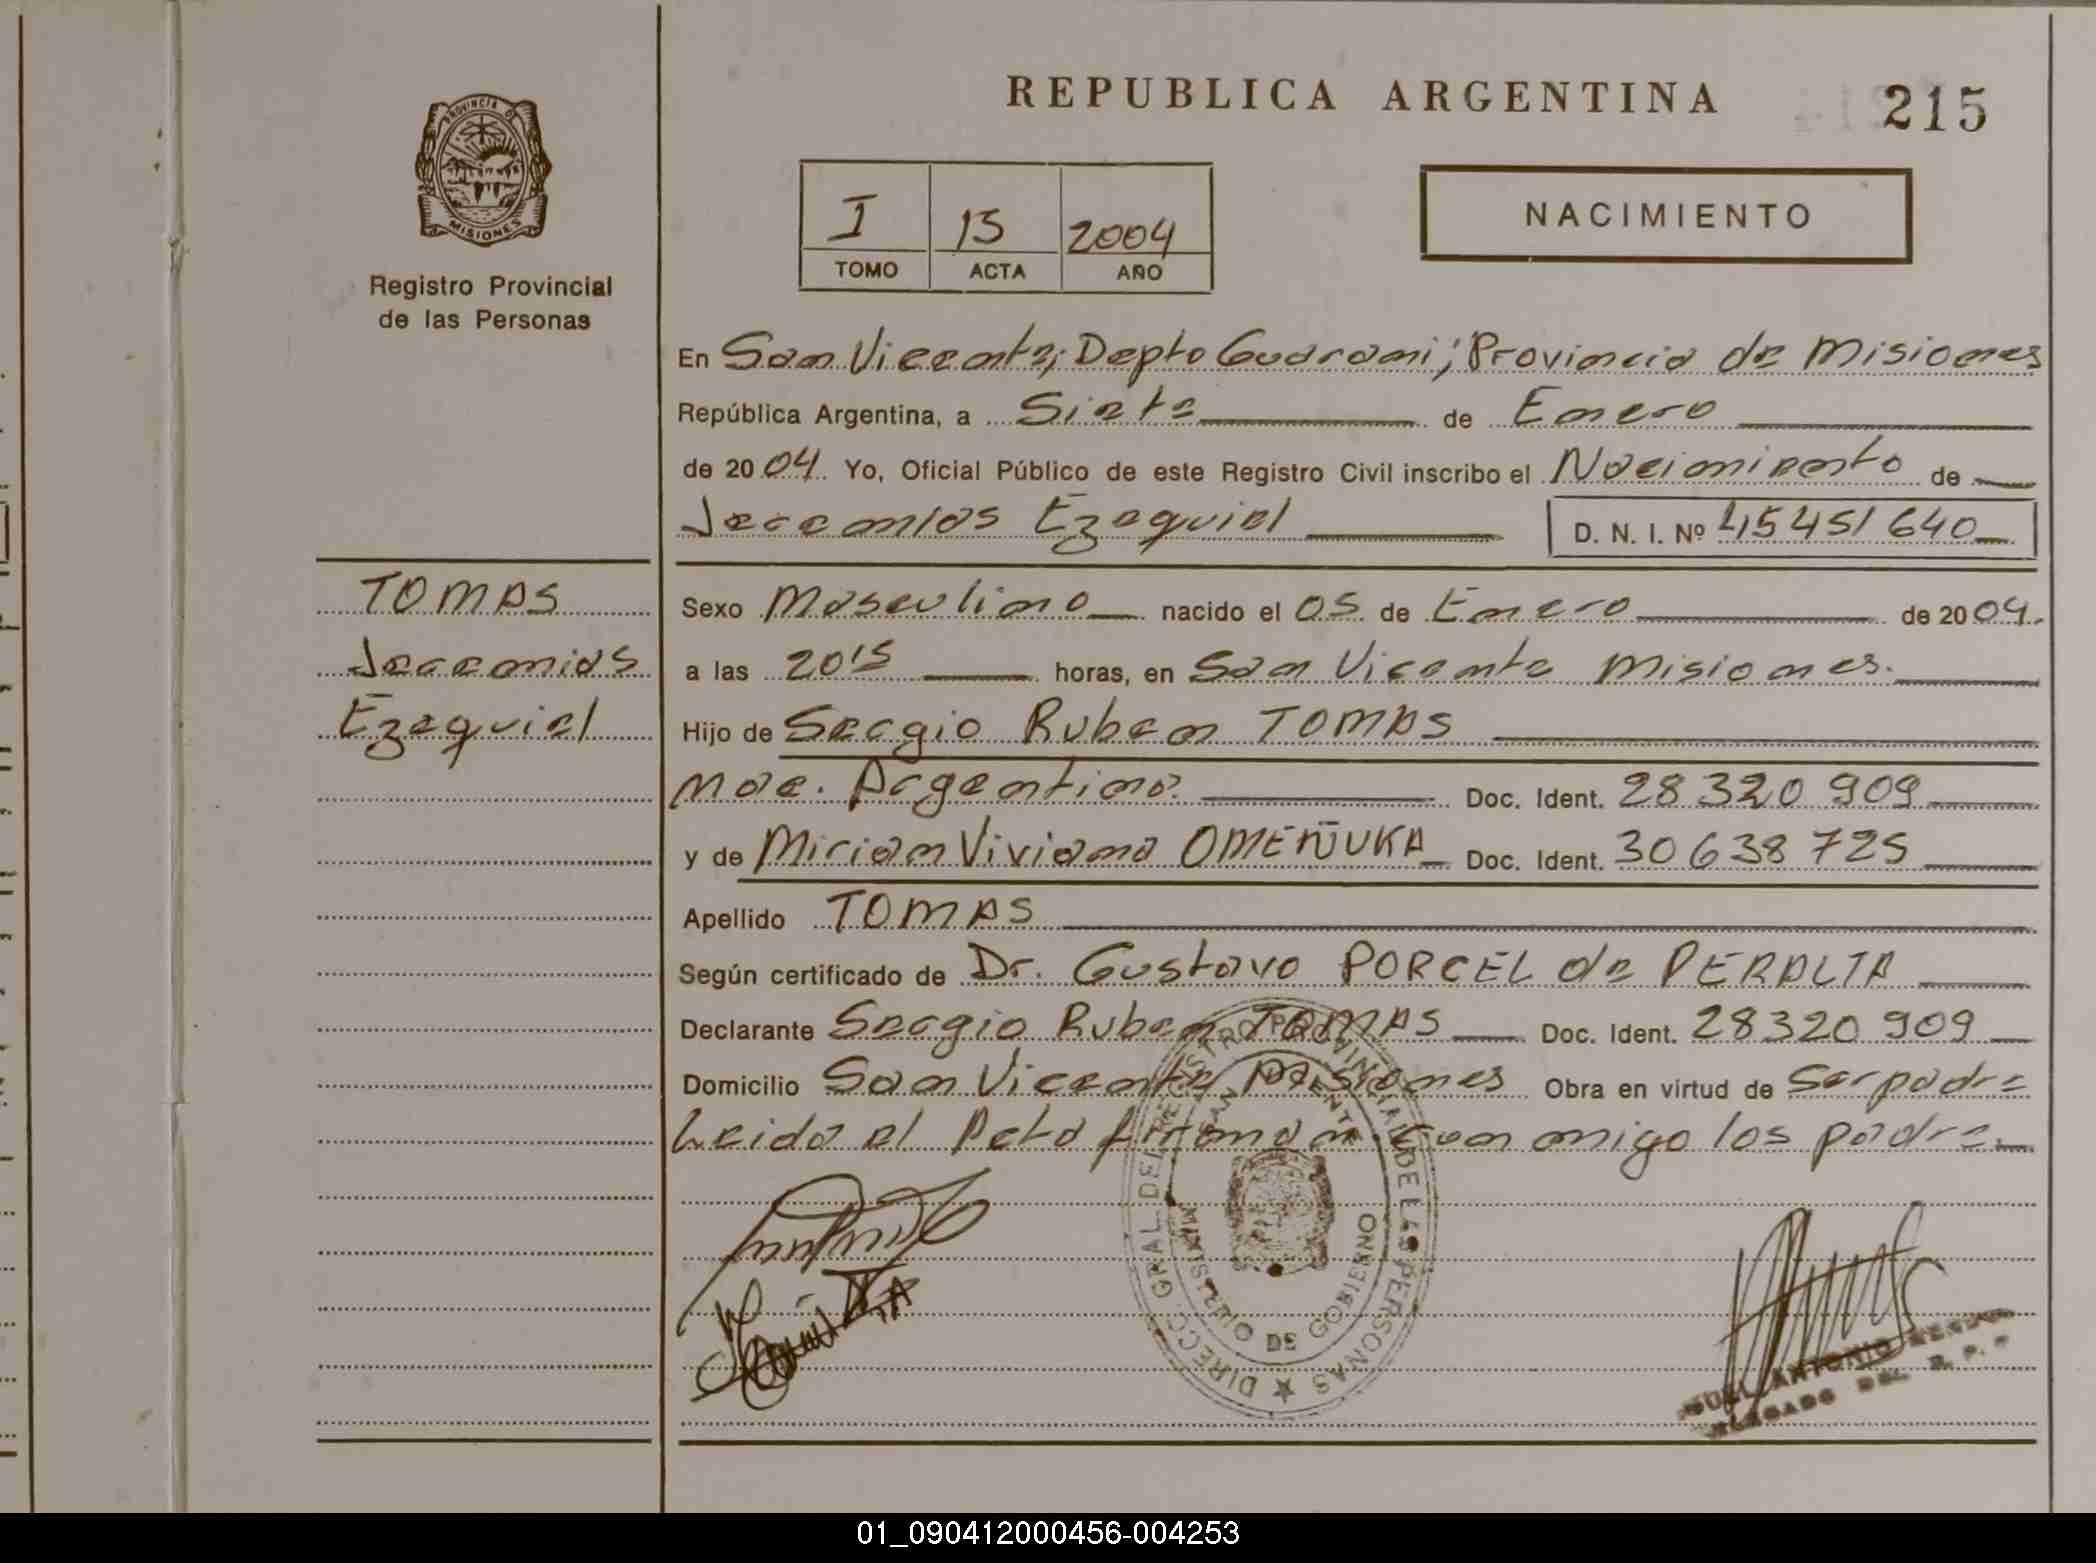 REPUBLICA ARGENTINA
215
PROVINCIA D
MISIONES
Registro Provincial
de las Personas
I 15 2004
TOMO ACTA AÑO
NACIMIENTO
En San Vicente; Depto Guarani; Provincia de Misiones
República Argentina, a Siete de Enero
de 2004. Yo, Oficial Público de este Registro Civil inscribo el Nacimiento de
Jeremias Ezequiel D. N. I. Nº 45451640
TOMAS
Jeremias
Ezequiel
Sexo Masculino nacido el 05 de Enero de 2004.
a las 20 15 horas, en San Vicente Misiones.
Hijo de Sergio Ruben TOMAS
Nac. Argentina. Doc. Ident. 28 320 909
y de Miriam Viviana OMEÑUKA Doc. Ident. 30 638 725
Apellido TOMAS
Según certificado de Dr. Gustavo PORCEL de PERALTA
Declarante Sergio Ruben TOMAS Doc. Ident. 28320 909
Domicilio San Vicente Misiones Obra en virtud de Ser padre
Leido el Acta firman conmigo los padre
DIRECC. GRAL. DEL REGISTRO PROVINCIAL DE LAS PERSONAS
SAN VICENTE
MINISTERIO DE GOBIERNO
ANTONIO
DEL R. P. P
01_090412000456-004253